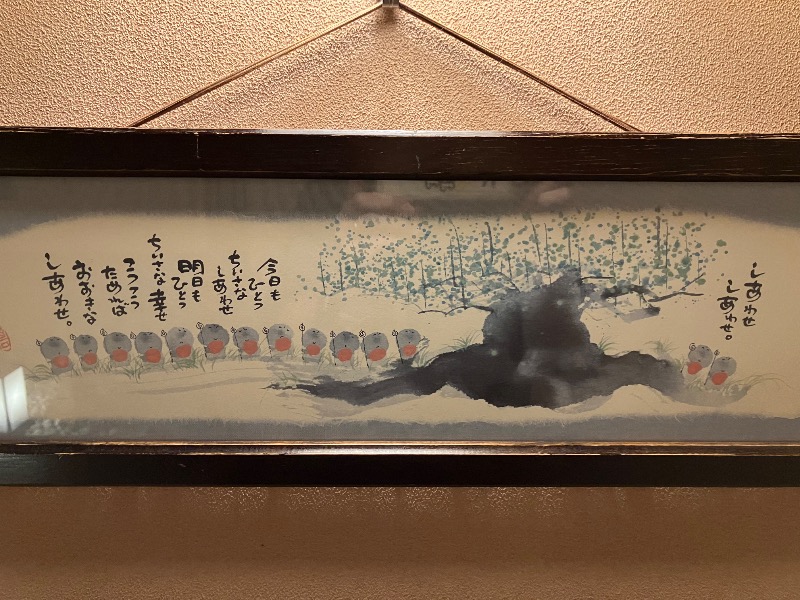 しあわせ
しあわせ。
今日も
ひとつ
ちいさな
しあわせ
明日も
ひとつ
ちいさな幸せ
コツコツ
ためれば
おおきな
しあわせ。